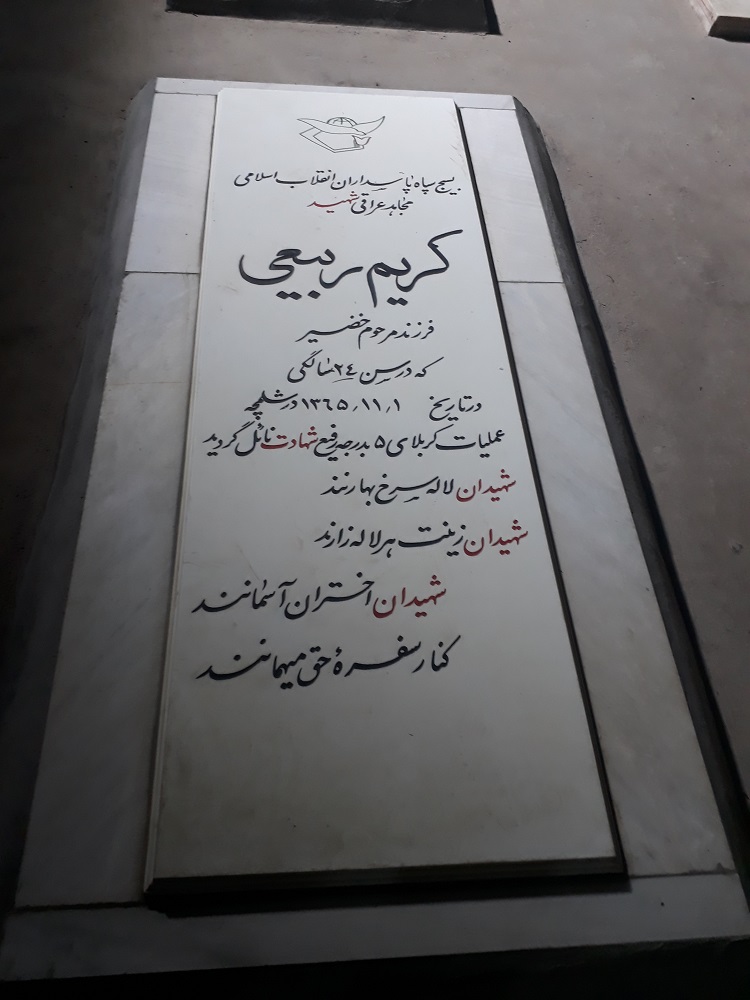 بسیج سپاه پاسداران انقلاب اسلامی
مجاهد عراقی شهید
کریم ربیعی
فرزند مرحوم خضیر
که در سن ٢٤ سالگی
در تاریخ ١٣٦٥٫١١٫١ در شلمچه
عملیات کربلای ۵ بدرجه رفیع شهادت نائل گردید
شهیدان لاله سرخ بهارند
شهیدان زینت هر لاله زارند
شهیدان اختران آسمانند
کنار سفرهٔ حق میهمانند